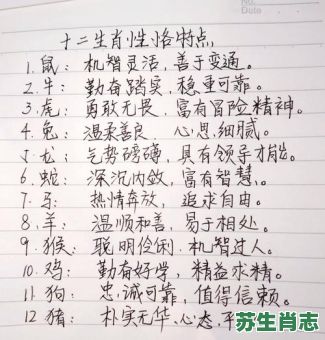 No.
Date
十二生肖性格特点
1.鼠：机智灵活，善于变通。
2.牛：勤奋踏实，稳重可靠。
3.虎：勇敢无畏，富有冒险精神。
4.兔：温柔善良，心思细腻。
5.龙：气势磅礴，具有领导才能。
6.蛇：深沉内敛，富有智慧。
7.马：热情奔放，追求自由。
8.羊：温顺和善，易于相处。
9.猴：聪明伶俐，机智过人。
10.鸡：勤奋好学，精益求精。
11.狗：忠诚可靠，值得信赖。
12.猪：朴实无华，心态平
苏生肖志